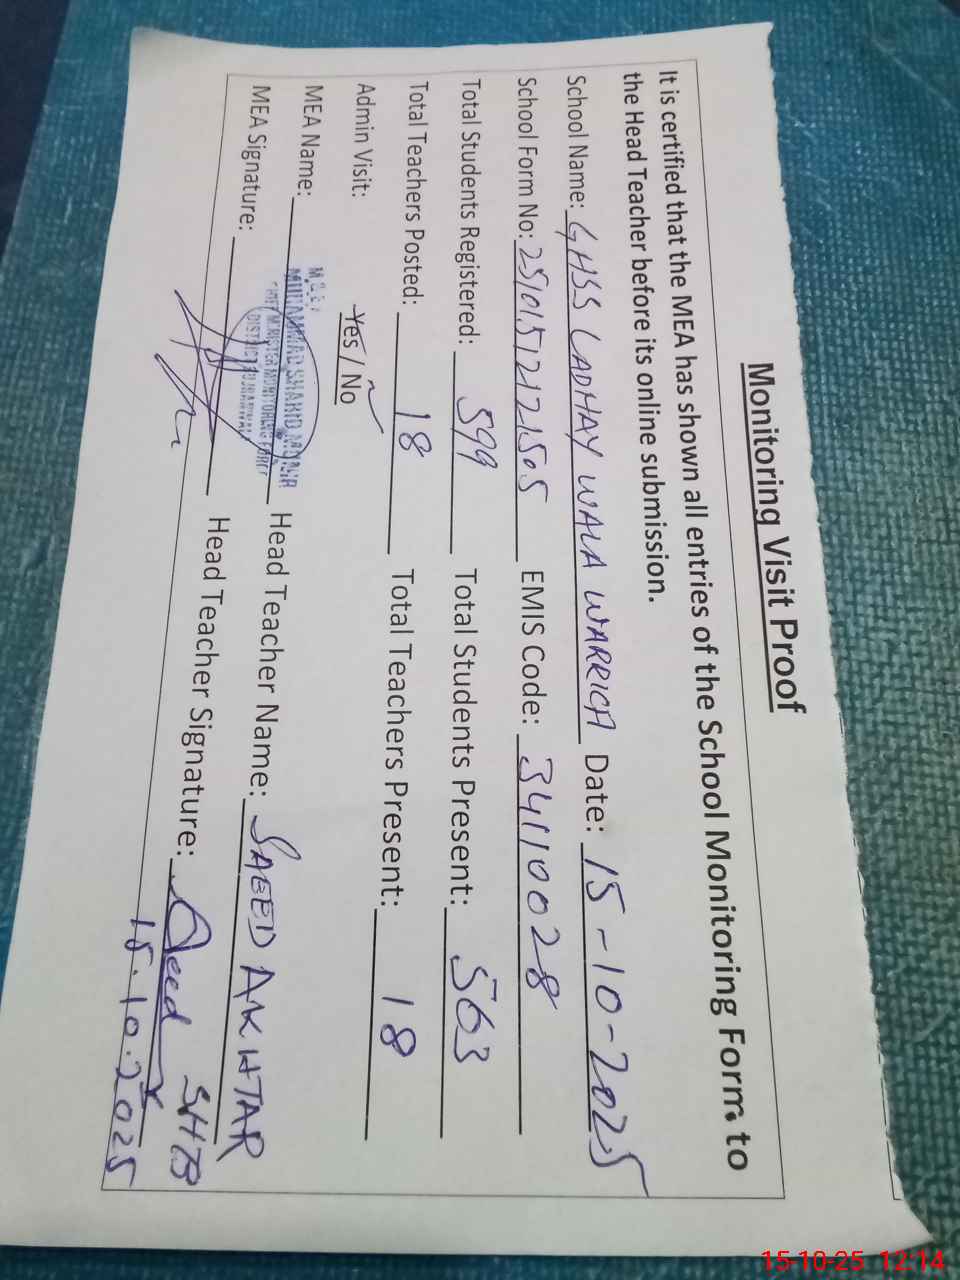 Monitoring Visit Proof
It is certified that the MEA has shown all entries of the School Monitoring Form to
the Head Teacher before its online submission.
School Name: GHSS LADHAY WALA WARRICH Date: 15-10-2025
School Form No: 25101512121505 EMIS Code: 34110028
Total Students Registered: 599 Total Students Present: 563
Total Teachers Posted: 18 Total Teachers Present: 18
Admin Visit: Yes / No
MEA Name: MUHAMMAD SHAHID MUNIR Head Teacher Name: SAEED AKHTAR
CHIEF MINISTER MONITORING FORCE
DISTRICT GUJRANWALA
MEA Signature: Head Teacher Signature: Saeed SHTB
15.10.2025
15-10-25 12:14